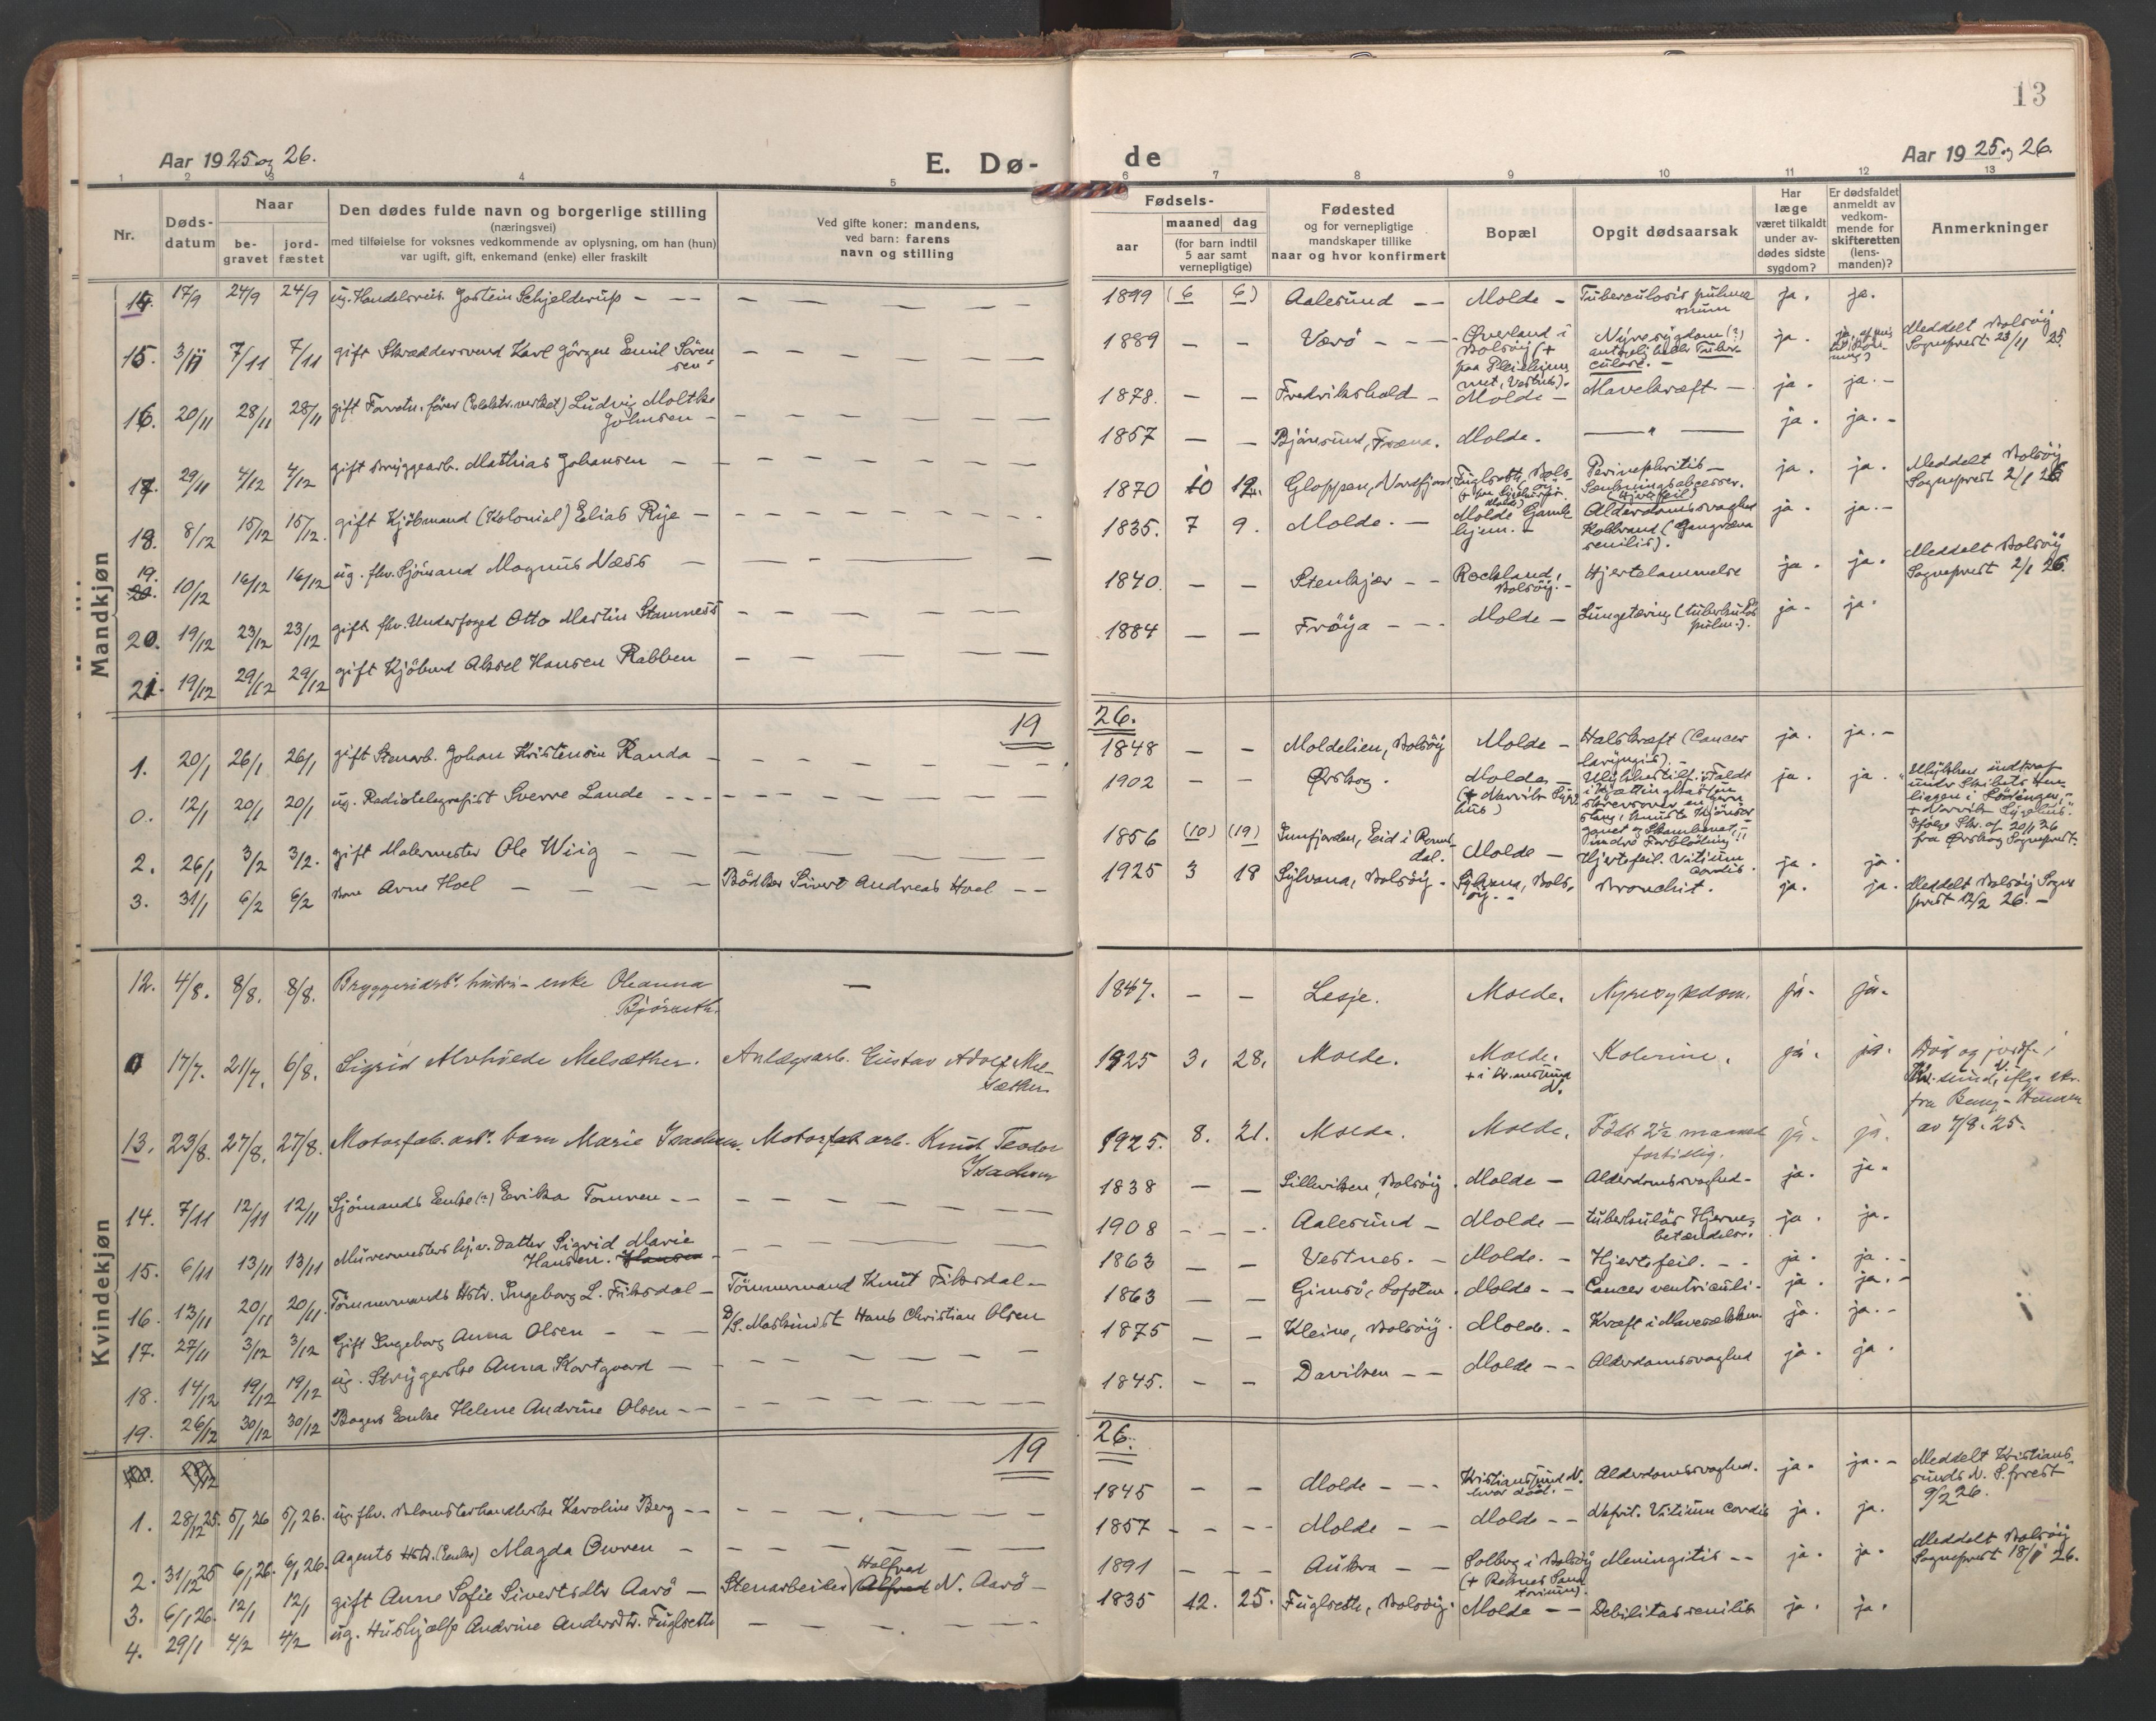 13
Aar 1925 og 26.
E. Dø-
de
Aar 1925 og 26.
1 2 3 4 5 6 7 8 9 10 11 12 13
Nr.
Døds-
datum
Naar
be-
gravet
jord-
fæstet
Den dødes fulde navn og borgerlige stilling
(næringsvei)
med tilføielse for voksnes vedkommende av oplysning, om han (hun)
var ugift, gift, enkemand (enke) eller fraskilt
Ved gifte koner: mandens,
ved barn: farens
navn og stilling
Fødsels-
aar
maaned dag
(for barn indtil
5 aar samt
vernepligtige)
Fødested
og for vernepligtige
mandskaper tillike
naar og hvor konfirmert
Bopæl
Opgit dødsaarsak
Har
læge
været tilkaldt
under av-
dødes sidste
sygdom?
Er dødsfaldet
anmeldt av
vedkom-
mende for
skifteretten
(lens-
manden)?
Anmerkninger
Mandkjøn
14. 17/9 24/9 24/9 ug. Handelsreis. Jostein Schjelderup - - - 1899 (6 6) Aalesund - - Molde - Tuberculosis pulmo
num ja. ja.
15. 3/11 7/11 7/11 gift Skræddersvend Karl Jörgen Emil Sören
sen - 1889 - - Værö - - Øverland i
Bolsöy (+
paa Pleiehjem
met, Vestnes). Nyresygdom (?)
antagelig heller Tuber-
culose. - ja. Meddelt Bolsöy
Sogneprest 23/11 25.
16. 20/11 28/11 28/11 gift Forretn. förer Ludvig Moltke
Johnsen - 1878. - - Fredrikshald - Molde - Mavekræft - ja. ja. -
17. 29/11 4/12 4/12 gift Bryggearb. Mathias Johansen - 1857 - - Bjönesund, Fræna. Molde. - " - ja. ja. -
18. 8/12 15/12 15/12. gift Kjöbmand (Kolonial) Elias Rye - 1870 10 12. Gloppen, Nordfjord Fuglseth, Bols-
öy. Perinephritis -
Senkningsabcesser.
(Hjertefeil) ja. ja. Meddelt Bolsöy
Sogneprest 2/1 26
19. 10/12 16/12 16/12 ug. fhv. Sjömand Magnus Næss - 1835. 7 9. Molde. - Molde Gamle
hjem. - Alderdomssvaghed
Koldbrand (Gangræna
senilis). ja. ja. -
20. 19/12 23/12 23/12 gift fhv. Underfoged Otto Martin Stamness 1840. - - Stenkjær - - Rockland,
Bolsöy. - Hjertelammelse ja. ja. Meddelt Bolsöy
Sogneprest 2/1 26.
21. 19/12 29/12 29/12 gift Kjöbmd Aksel Hansen Rabben 1884 - - Fröya - - Molde - Lungetæring (tuberkulos
pulm.). ja. ja.
19
26.
1. 20/1 26/1 26/1 gift Stenarb. Johan Kristensen Randa - 1848 - - Moldelien, Bolsöy Molde - Halskræft (Cancer
laryngis). - ja. ja. -
0. 12/1 20/1 20/1 ug. Radiotelegrafist Sverre Lande - - - 1902 - - Ørskog. Molde -
(+ Narvik Syge
hus) ja. ja. Ulykken indtraf
+ Narvik Sygehus.
Ifølge Skr. af 20/1 26
fra Ørskog Sogneprest.
2. 26/1 3/2 3/2. gift Malermester Ole Wiig - 1856 (10) (19) Innfjorden, Eid i Roms
dal. Molde - Hjertefeil. Vitium
cordis. ja. ja.
3. 31/1 6/2 6/2 Barn Arne Hoel - - - Bödker Sivert Andreas Hoel - - 1925 3 18 Sylvana, Bolsöy. Sylvana, Bols-
öy. - Bronchit. ja. ja. Meddelt Bolsöy Sogne
prest 12/2 26. -
Kvindekjøn
12. 4/8. 8/8. 8/8. hustru - enke Oleanna
Björseth. - 1847. - - Lesje. Molde. Nyresykdom. ja. ja.
0 17/7. 21/7. 6/8. Sigrid Alvhilde Melsæther. Anlægsarb. Gustav Adolf Mel-
sæther 1925 3. 28. Molde. Molde.
+ i Kr.-sund
N. Kolerine. ja. ja. Död og jordf. i
Kr.-sund, iflg. skr.
fra Bang-Hansen
av 7/8. 25.
13. 23/8. 27/8. 27/8. Motorfab. arb. barn Marie Isachsen. Motorfab. arb. Knut Teodor
Isachsen 1925. 8. 21. Molde. Molde. Födt 2½ maaned
fortidlig. ja. ja.
14. 7/11 12/11 12/11 Sjömands Enke (?) Erika Tomren - - 1838 - - Lillevikken, Bolsöy. Molde - Alderdomssvaghed - ja. ja.
15. 6/11 13/11 13/11 Murermesters hj.v. Datter Sigrid Marie
Hansen. Hansen 1908 - - Aalesund - Molde - tuberkulös Hjerne-
betændelse. ja. ja.
16. 13/11 20/11 20/11. Tömmermands Hstr. Ingeborg L. Fiksdal - Tömmermand Knut Fiksdal - 1863 - - Vestnes. - Molde. - Hjertefeil. - - ja. ja. -
17. 27/11 3/12 3/12 Gift Ingeborg Anna Olsen - - - D/S. Maskinist Hans Christian Olsen 1863 - - Gimsö, Lofoten. Molde - - Cancer ventriculi - ja. ja. -
18. 14/12 19/12 19/12 ug. Strygerske Anna Kortgaard - 1875 - - Kleive, Bolsöy. Molde. - Kræft i Mavesækken ja. ja. -
19. 26/12 30/12 30/12 Bagers Enke Helene Andrine Olsen - - 1845. - - Daviken - - Molde - - Alderdomssvaghed ja. ja.
19
26.
28/12
1. 28/12 25. 5/1 26 5/1 26. ug. fhv. Blomsterhandlerske Karoline Berg - - 1845 - - Molde - - Kristiansund N.
hvor död. - Alderdomssvaghed. ja. ja. - Meddelt Kristians-
sunds N. S.prest
9/2 26.
2. 31/12 25 6/1 26. 6/1 26. Agents Hstr. (Enke) Magda Owren - 1857 - - Molde - - Molde - - Nefrit. Vitium cordis ja. ja.
3. 6/1 26. 12/1 12/1 gift Anne Sofie Sivertsdtr Aarö - Stenarbeider Alfred Halfred N. Aarö - 1891 - - Aukra - - Solberg i Bolsöy
(+ Reknes Sana
torium). Meningitis - - ja. ja. Meddelt Bolsöy
Sogneprest 18/1 26.
4. 29/1 4/2 4/2 ug. Hushjælp Andrine Andersdtr. Fuglseth 1835 12. 25. Fuglseth, Bolsöy. Molde - - Debilitas senilis ja. ja.